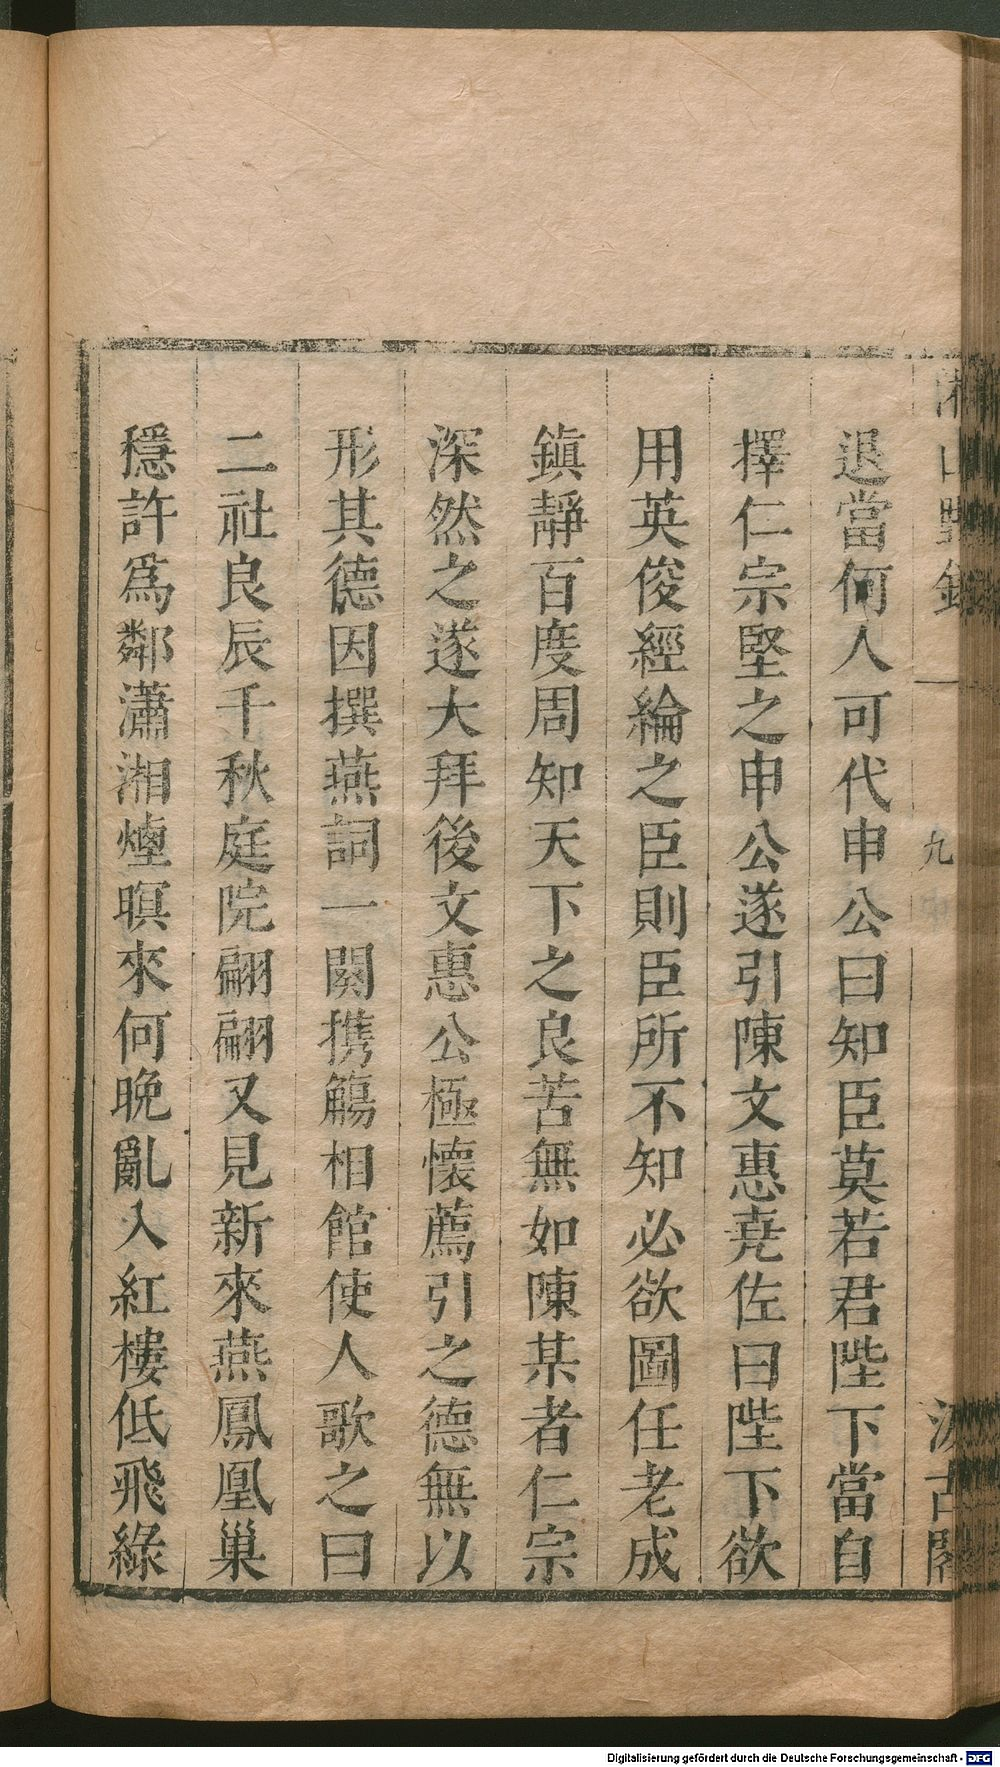 退當何人可代申公曰知臣莫若君陛下當自
擇仁宗堅之申公遂引陳文惠堯佐曰陛下欲
用英俊經綸之臣則臣所不知必欲圖任老成
鎮靜百度周知天下之良苦無如陳某者仁宗
深然之遂大拜後文惠公極懷薦引之德無以
形其德因撰燕詞一闋携觴相館使人歌之曰
二社良辰千秋庭院翩翩又見新來燕鳳凰巢
穩許爲鄰瀟湘煙暝來何晚亂入紅樓低飛綠
九
Digitalisierung gefördert durch die Deutsche Forschungsgemeinschaft - DFG